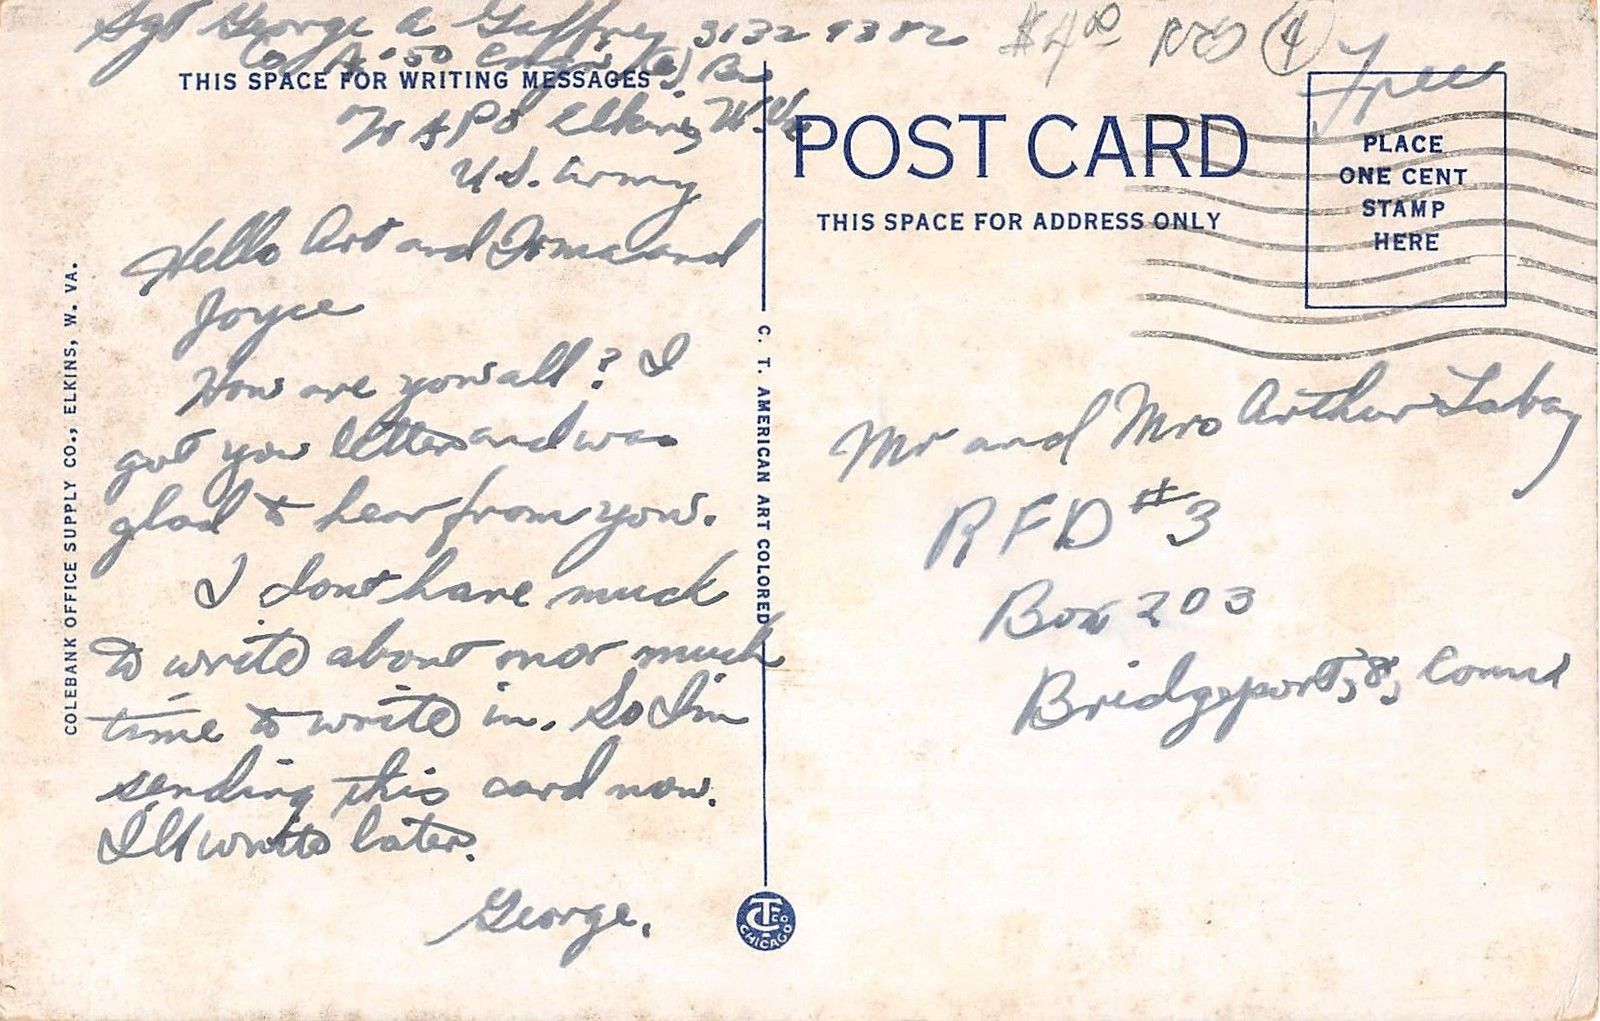 Sgt George A Gaffney 31329382
Co A - 50 Engrs (C) Bn
APO Elkins, W. Va
U.S. Army
THIS SPACE FOR WRITING MESSAGES
Hello Art and Irma and
Joyce
How are you all? I
got your letters and was
glad to hear from you.
I dont have much
to write about nor much
time to write in. So I'm
sending this card now.
I'll write later.
George.
COLEBANK OFFICE SUPPLY CO., ELKINS, W. VA.
C. T. AMERICAN ART COLORED
CT CO
CHICAGO
$4.00
4
Free
POST CARD
THIS SPACE FOR ADDRESS ONLY
PLACE
ONE CENT
STAMP
HERE
Mr and Mrs Arthur
RFD #3
Box 203
Bridgeport, 8, Conn